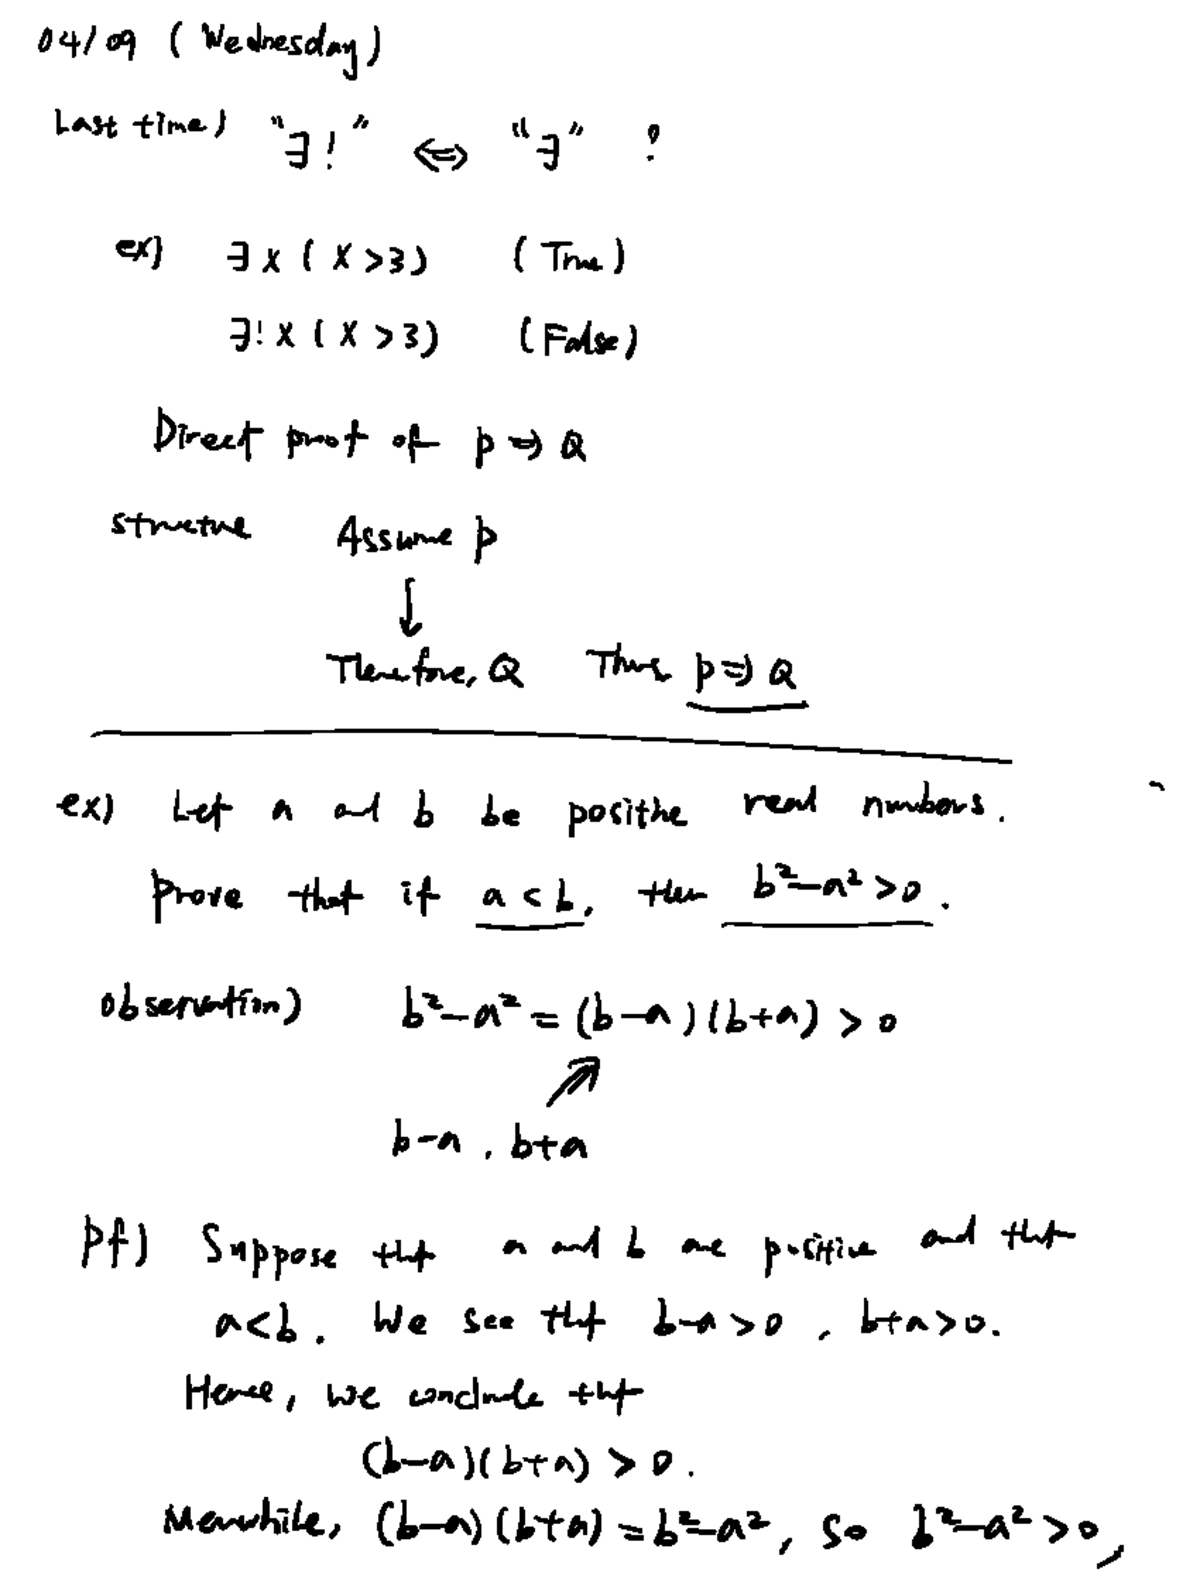 04/09 (Wednesday)
Last time) "∃!" ⇔ "∃" ?
ex) ∃x (x>3) (True)
∃!x (x>3) (False)
Direct proof of P ⇒ Q
structure Assume P
↓
Therefore, Q Thus P ⇒ Q
ex) Let a and b be positive real numbers.
Prove that if a<b, then b²-a²>0.
observation) b²-a² = (b-a)(b+a) > 0
b-a, b+a
pf) Suppose that a and b are positive and that
a<b. We see that b-a>0, b+a>0.
Hence, we conclude that
(b-a)(b+a) > 0.
Meanwhile, (b-a)(b+a) = b²-a², so b²-a²>0,